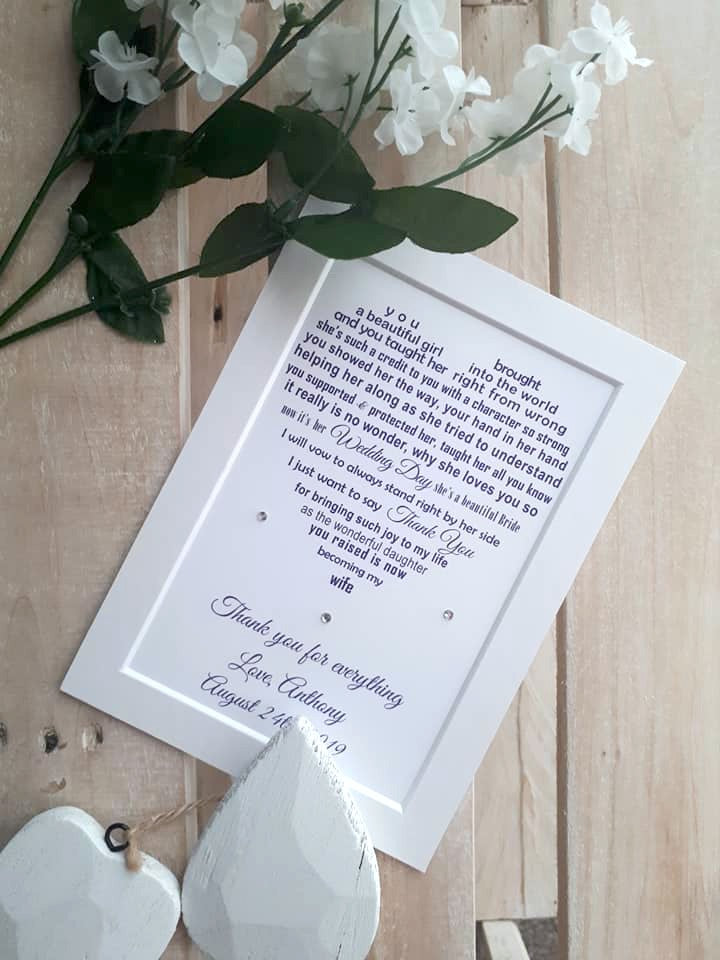 you brought
a beautiful girl into the world
and you taught her right from wrong
she's such a credit to you with a character so strong
you showed her the way, your hand in her hand
helping her along as she tried to understand
you supported & protected her, taught her all you know
it really is no wonder, why she loves you so
now it's her Wedding Day she's a beautiful Bride
I will vow to always stand right by her side
I just want to say Thank You
for bringing such joy to my life
as the wonderful daughter
you raised is now
becoming my
wife
Thank you for everything
Love, Anthony
August